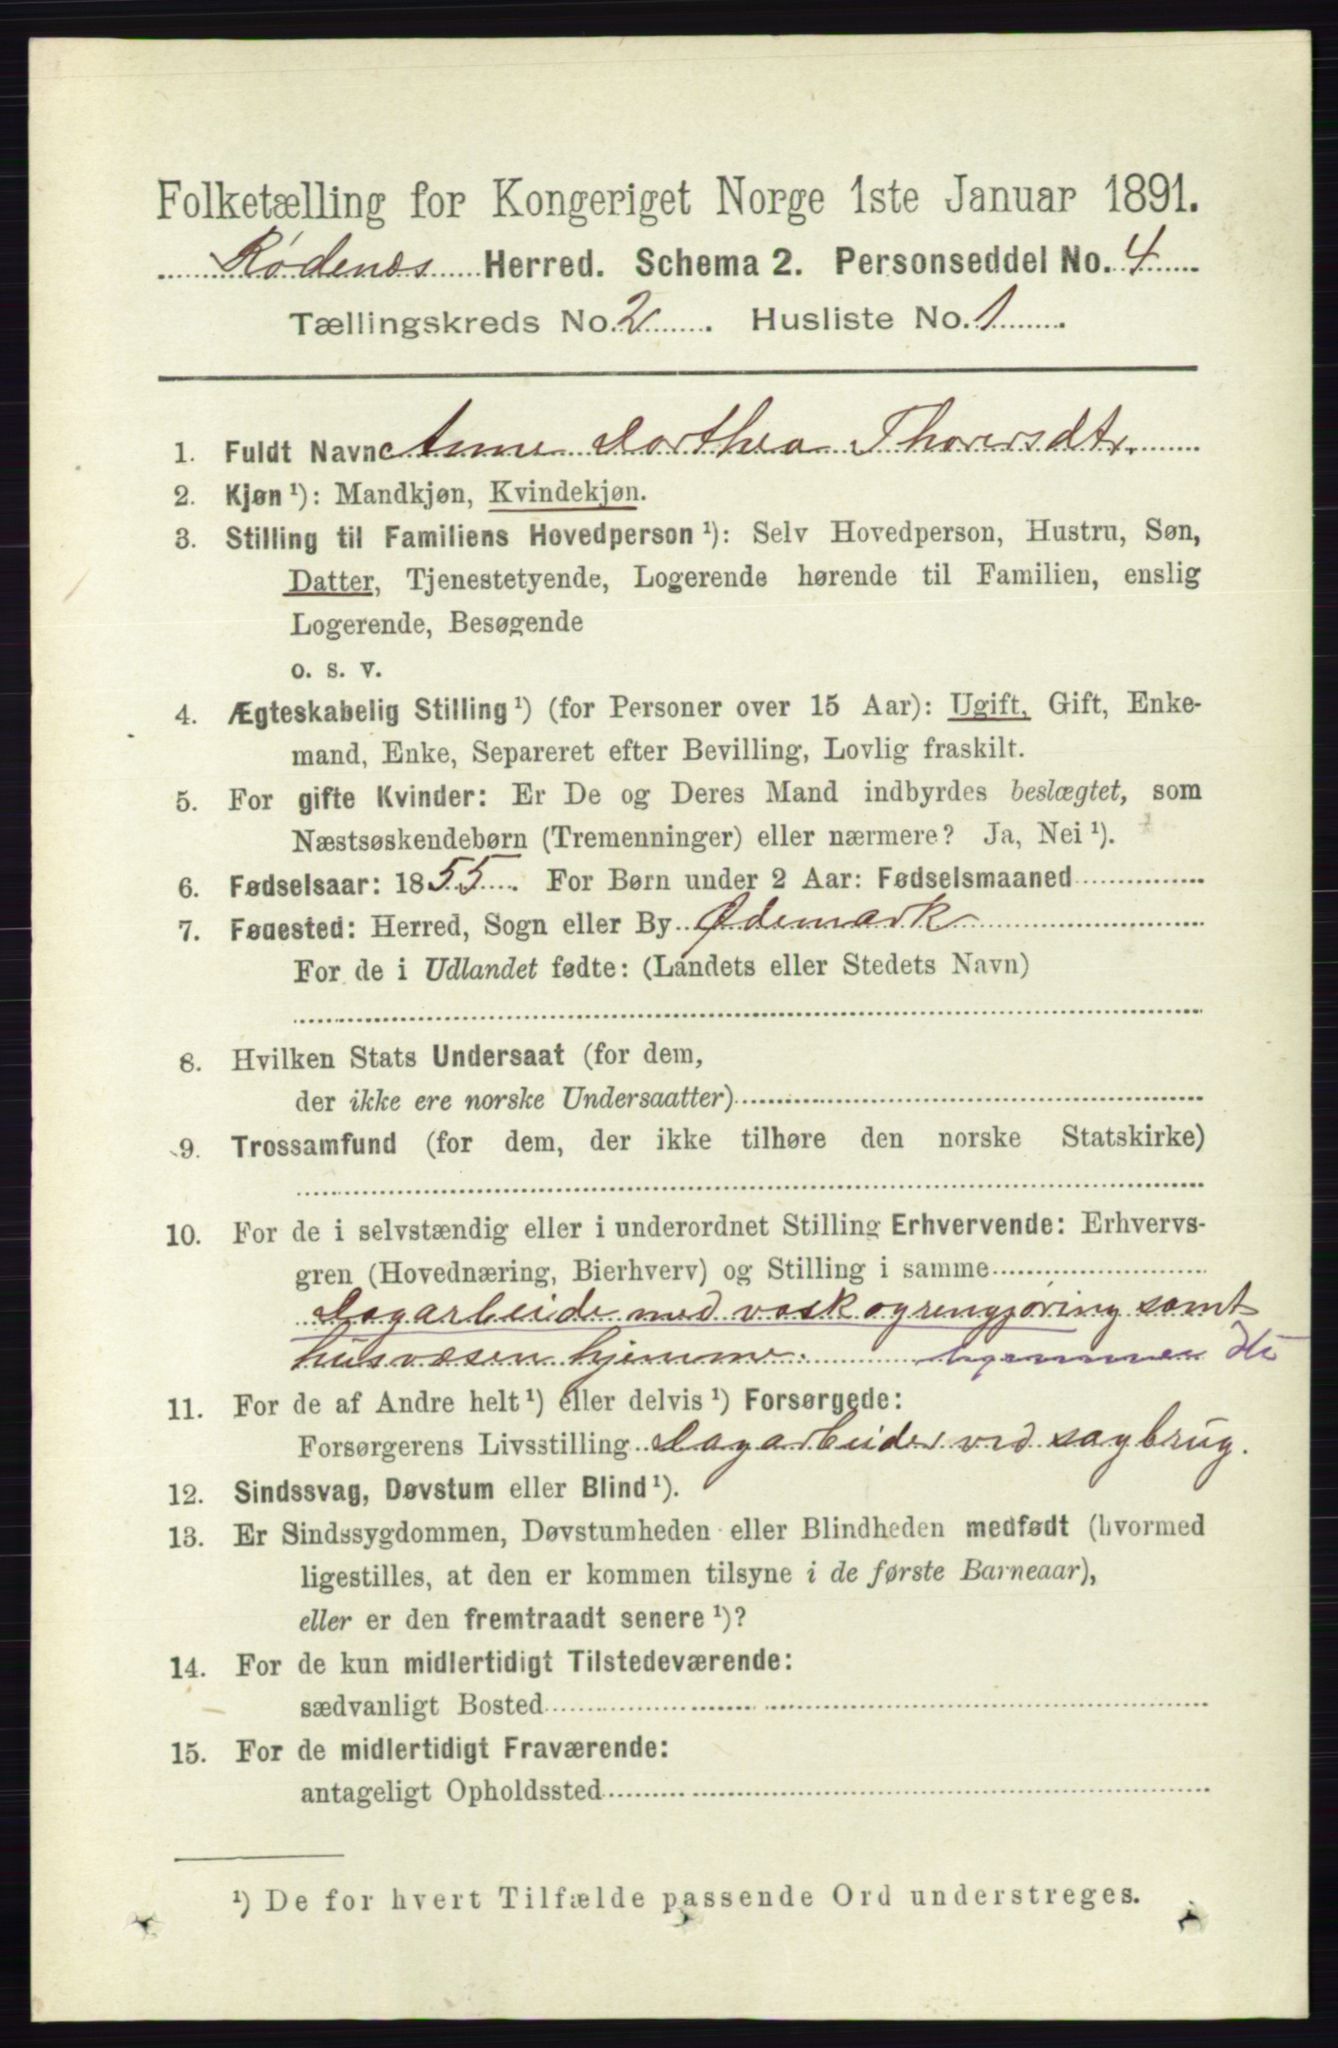 Folketælling for Kongeriget Norge 1ste Januar 1891.
Rødenæs Herred. Schema 2. Personseddel No. 4
Tællingskreds No. 2 . Husliste No. 1
1. Fuldt Navn Anne Dorthea Thorersdtr.
2. Kjøn ¹): Mandkjøn, Kvindekjøn.
3. Stilling til Familiens Hovedperson ¹): Selv Hovedperson, Hustru, Søn,
Datter, Tjenestetyende, Logerende hørende til Familien, enslig
Logerende, Besøgende
o. s. v.
4. Ægteskabelig Stilling ¹) (for Personer over 15 Aar): Ugift, Gift, Enke-
mand, Enke, Separeret efter Bevilling, Lovlig fraskilt.
5. For gifte Kvinder: Er De og Deres Mand indbyrdes beslægtet, som
Næstsøskendebørn (Tremenninger) eller nærmere? Ja, Nei ¹).
6. Fødselsaar: 1855. For Børn under 2 Aar: Fødselsmaaned
7. Fødested: Herred, Sogn eller By Ødemark
For de i Udlandet fødte: (Landets eller Stedets Navn)
8. Hvilken Stats Undersaat (for dem,
der ikke ere norske Undersaatter)
9. Trossamfund (for dem, der ikke tilhøre den norske Statskirke)
10. For de i selvstændig eller i underordnet Stilling Erhvervende: Erhvervs-
gren (Hovednæring, Bierhverv) og Stilling i samme
Dagarbeide med vask og rengjøring samt
husvæsen hjemme.
11. For de af Andre helt ¹) eller delvis ¹) Forsørgede:
Forsørgerens Livsstilling Dagarbeider ved sagbrug.
12. Sindssvag, Døvstum eller Blind ¹).
13. Er Sindssygdommen, Døvstumheden eller Blindheden medfødt (hvormed
ligestilles, at den er kommen tilsyne i de første Barneaar),
eller er den fremtraadt senere ¹)?
14. For de kun midlertidigt Tilstedeværende:
sædvanligt Bosted
15. For de midlertidigt Fraværende:
antageligt Opholdssted
¹) De for hvert Tilfælde passende Ord understreges.